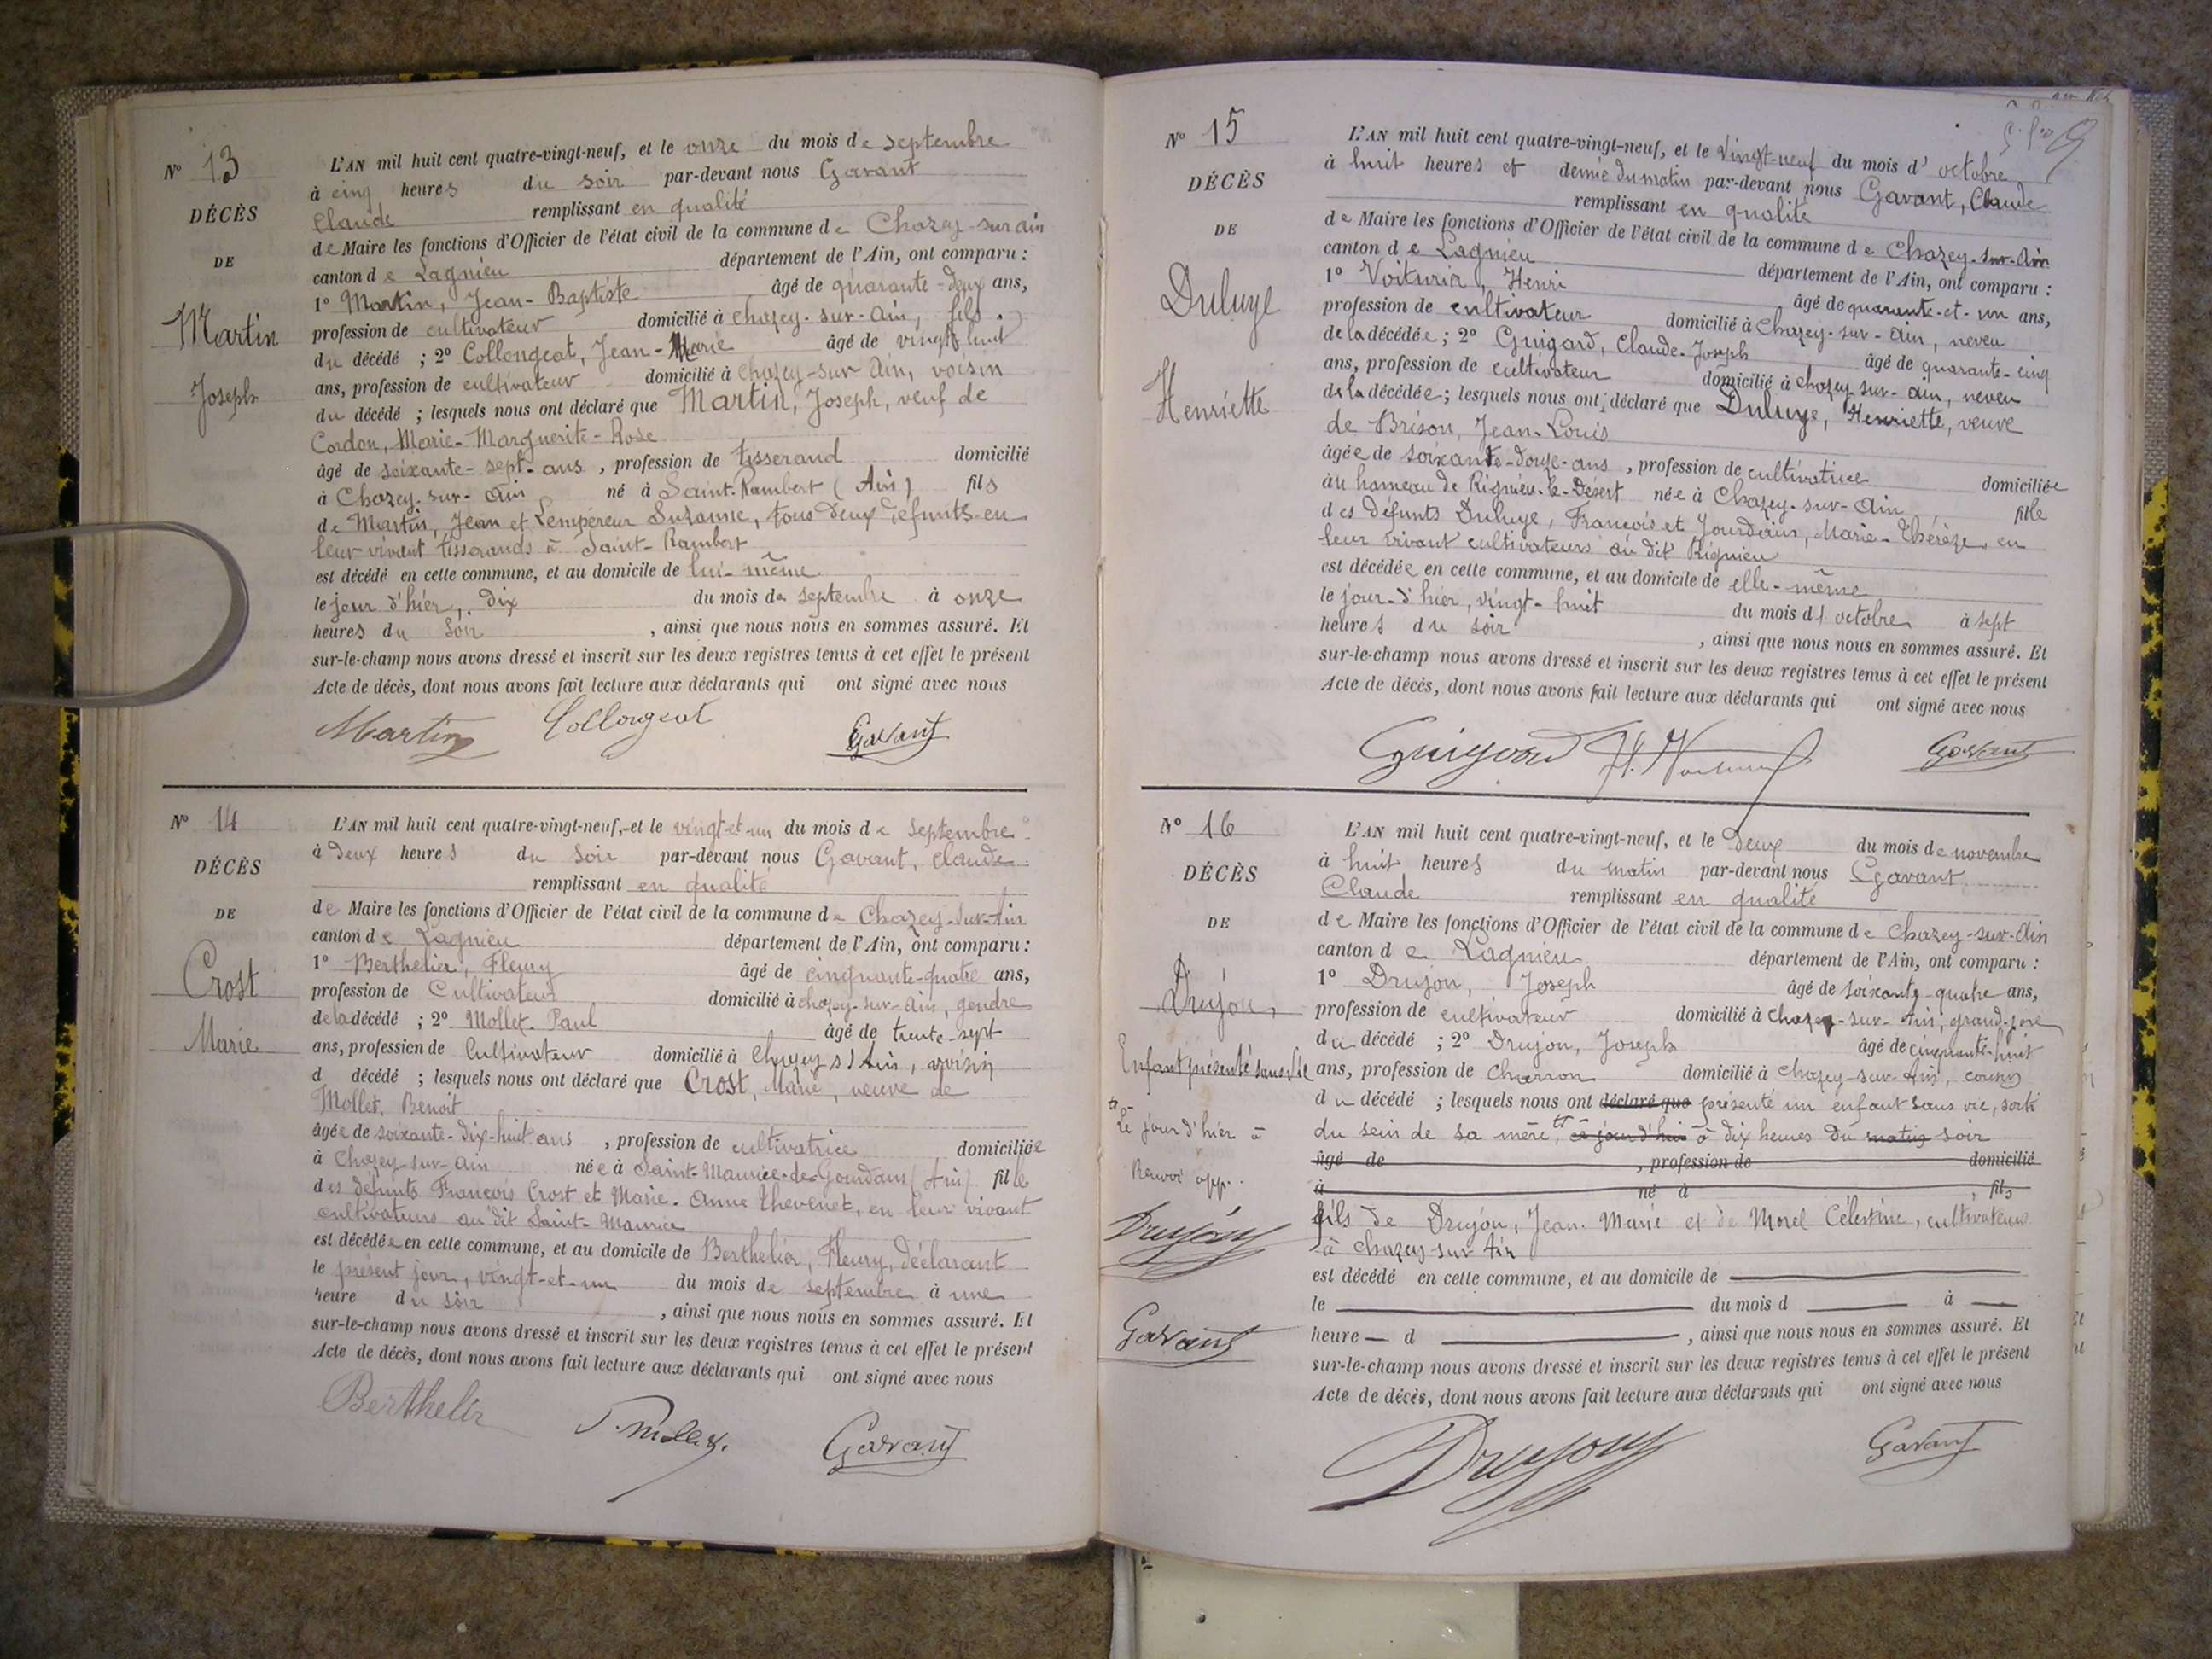 N° 13
DÉCÈS
DE
Martin
Joseph
L'AN mil huit cent quatre-vingt-neuf, et le onze du mois de septembre
à cinq heures du soir par-devant nous Gavant
Claude remplissant en qualité
de Maire les fonctions d'Officier de l'état civil de la commune de Chazey-sur-ain
canton de Lagnieu département de l'Ain, ont comparu :
1° Martin, Jean-Baptiste âgé de quarante-deux ans,
profession de cultivateur domicilié à chazey-sur-ain, fils
du décédé ; 2° Collongeat, Jean-Marie âgé de vingt huit
ans, profession de cultivateur domicilié à chazey-sur-Ain, voisin
du décédé ; lesquels nous ont déclaré que Martin, Joseph, veuf de
Cordon, Marie-Marguerite-Rose
âgé de soixante-sept-ans, profession de tisserand domicilié
à Chazey-sur-Ain né à Saint-Rambert (Ain) fils
de Martin, Jean et Lempereur Suzanne, tous deux défunts en
leur vivant tisserands à Saint-Rambert
est décédé en cette commune, et au domicile de lui-même
le jour d'hier, dix du mois de septembre à onze
heures du soir, ainsi que nous nous en sommes assuré. Et
sur-le-champ nous avons dressé et inscrit sur les deux registres tenus à cet effet le présent
Acte de décès, dont nous avons fait lecture aux déclarants qui ont signé avec nous
Martin Collongeat Gavant
N° 14
DÉCÈS
DE
Crost
Marie
L'AN mil huit cent quatre-vingt-neuf, et le vingt-et-un du mois de septembre
à deux heures du soir par-devant nous Gavant, Claude
remplissant en qualité
de Maire les fonctions d'Officier de l'état civil de la commune de Chazey-sur-Ain
canton de Lagnieu département de l'Ain, ont comparu :
1° Berthelier, Fleury âgé de cinquante-quatre ans,
profession de Cultivateur domicilié à chazey-sur-Ain, gendre
de la décédé ; 2° Mollet Paul âgé de trente-sept
ans, profession de Cultivateur domicilié à Chazey s/ Ain, voisin
d décédé ; lesquels nous ont déclaré que Crost, Marie, veuve de
Mollet, Benoit
âgée de soixante-dix-huit ans, profession de cultivatrice domiciliée
à Chazey-sur-Ain née à Saint-Maurice-de-Gourdans (Ain) fille
des défunts François Crost et Marie-Anne Thevenet, en leur vivant
cultivateurs au dit Saint-Maurice
est décédée en cette commune, et au domicile de Berthelier, Fleury, déclarant
le présent jour, vingt-et-un du mois de septembre à une
heure du soir, ainsi que nous nous en sommes assuré. Et
sur-le-champ nous avons dressé et inscrit sur les deux registres tenus à cet effet le présent
Acte de décès, dont nous avons fait lecture aux déclarants qui ont signé avec nous
Berthelier Gavant
N° 15
DÉCÈS
DE
Duluye
Henriette
L'AN mil huit cent quatre-vingt-neuf, et le Vingt-neuf du mois d'octobre
à huit heures et demie du matin par-devant nous Gavant, Claude
remplissant en qualité
de Maire les fonctions d'Officier de l'état civil de la commune de Chazey-sur-Ain
canton de Lagnieu département de l'Ain, ont comparu :
1° Voiturier, Henri âgé de quarante-et-un ans,
profession de cultivateur domicilié à Chazey-sur-Ain, neveu
de la décédée ; 2° Guigard, Claude-Joseph âgé de quarante-cinq
ans, profession de cultivateur domicilié à chazey-sur-ain, neveu
de la décédée ; lesquels nous ont déclaré que Duluye, Henriette, veuve
de Brison, Jean-Louis
âgée de soixante-douze-ans, profession de cultivatrice domiciliée
au hameau de Rignieu-le-Désert née à Chazey-sur-Ain fille
des défunts Duluye, François et Jourdain, Marie-Thérèze en
leur vivant cultivateurs au dit Rignieu
est décédée en cette commune, et au domicile de elle-même
le jour-d'hier, vingt-huit du mois d'octobre à sept
heures du soir, ainsi que nous nous en sommes assuré. Et
sur-le-champ nous avons dressé et inscrit sur les deux registres tenus à cet effet le présent
Acte de décès, dont nous avons fait lecture aux déclarants qui ont signé avec nous
Guigard Gavant
N° 16
DÉCÈS
DE
Drujon
Enfant présenté sans vie
le jour d'hier à
Renvoi app.
Drujon
Gavant
L'AN mil huit cent quatre-vingt-neuf, et le deux du mois de novembre
à huit heures du matin par-devant nous Gavant
Claude remplissant en qualité
de Maire les fonctions d'Officier de l'état civil de la commune de Chazey-sur-Ain
canton de Lagnieu département de l'Ain, ont comparu :
1° Drujon, Joseph âgé de soixante-quatre ans,
profession de cultivateur domicilié à chazey-sur-Ain, grand-père
du décédé ; 2° Drujon, Joseph âgé de cinquante-huit
ans, profession de charron domicilié à chazey-sur-Ain, cousin
du décédé ; lesquels nous ont déclaré que présenté un enfant sans vie, sorti
du sein de sa mère, ce jour d'hui à dix heures du matin soir
âgé de , profession de domicilié
à né à fils
fils de Drujon, Jean-Marie et de Morel Célestine, cultivateurs
à chazey-sur-Ain
est décédé en cette commune, et au domicile de
le du mois d à
heure d , ainsi que nous nous en sommes assuré. Et
sur-le-champ nous avons dressé et inscrit sur les deux registres tenus à cet effet le présent
Acte de décès, dont nous avons fait lecture aux déclarants qui ont signé avec nous
Drujon Gavant